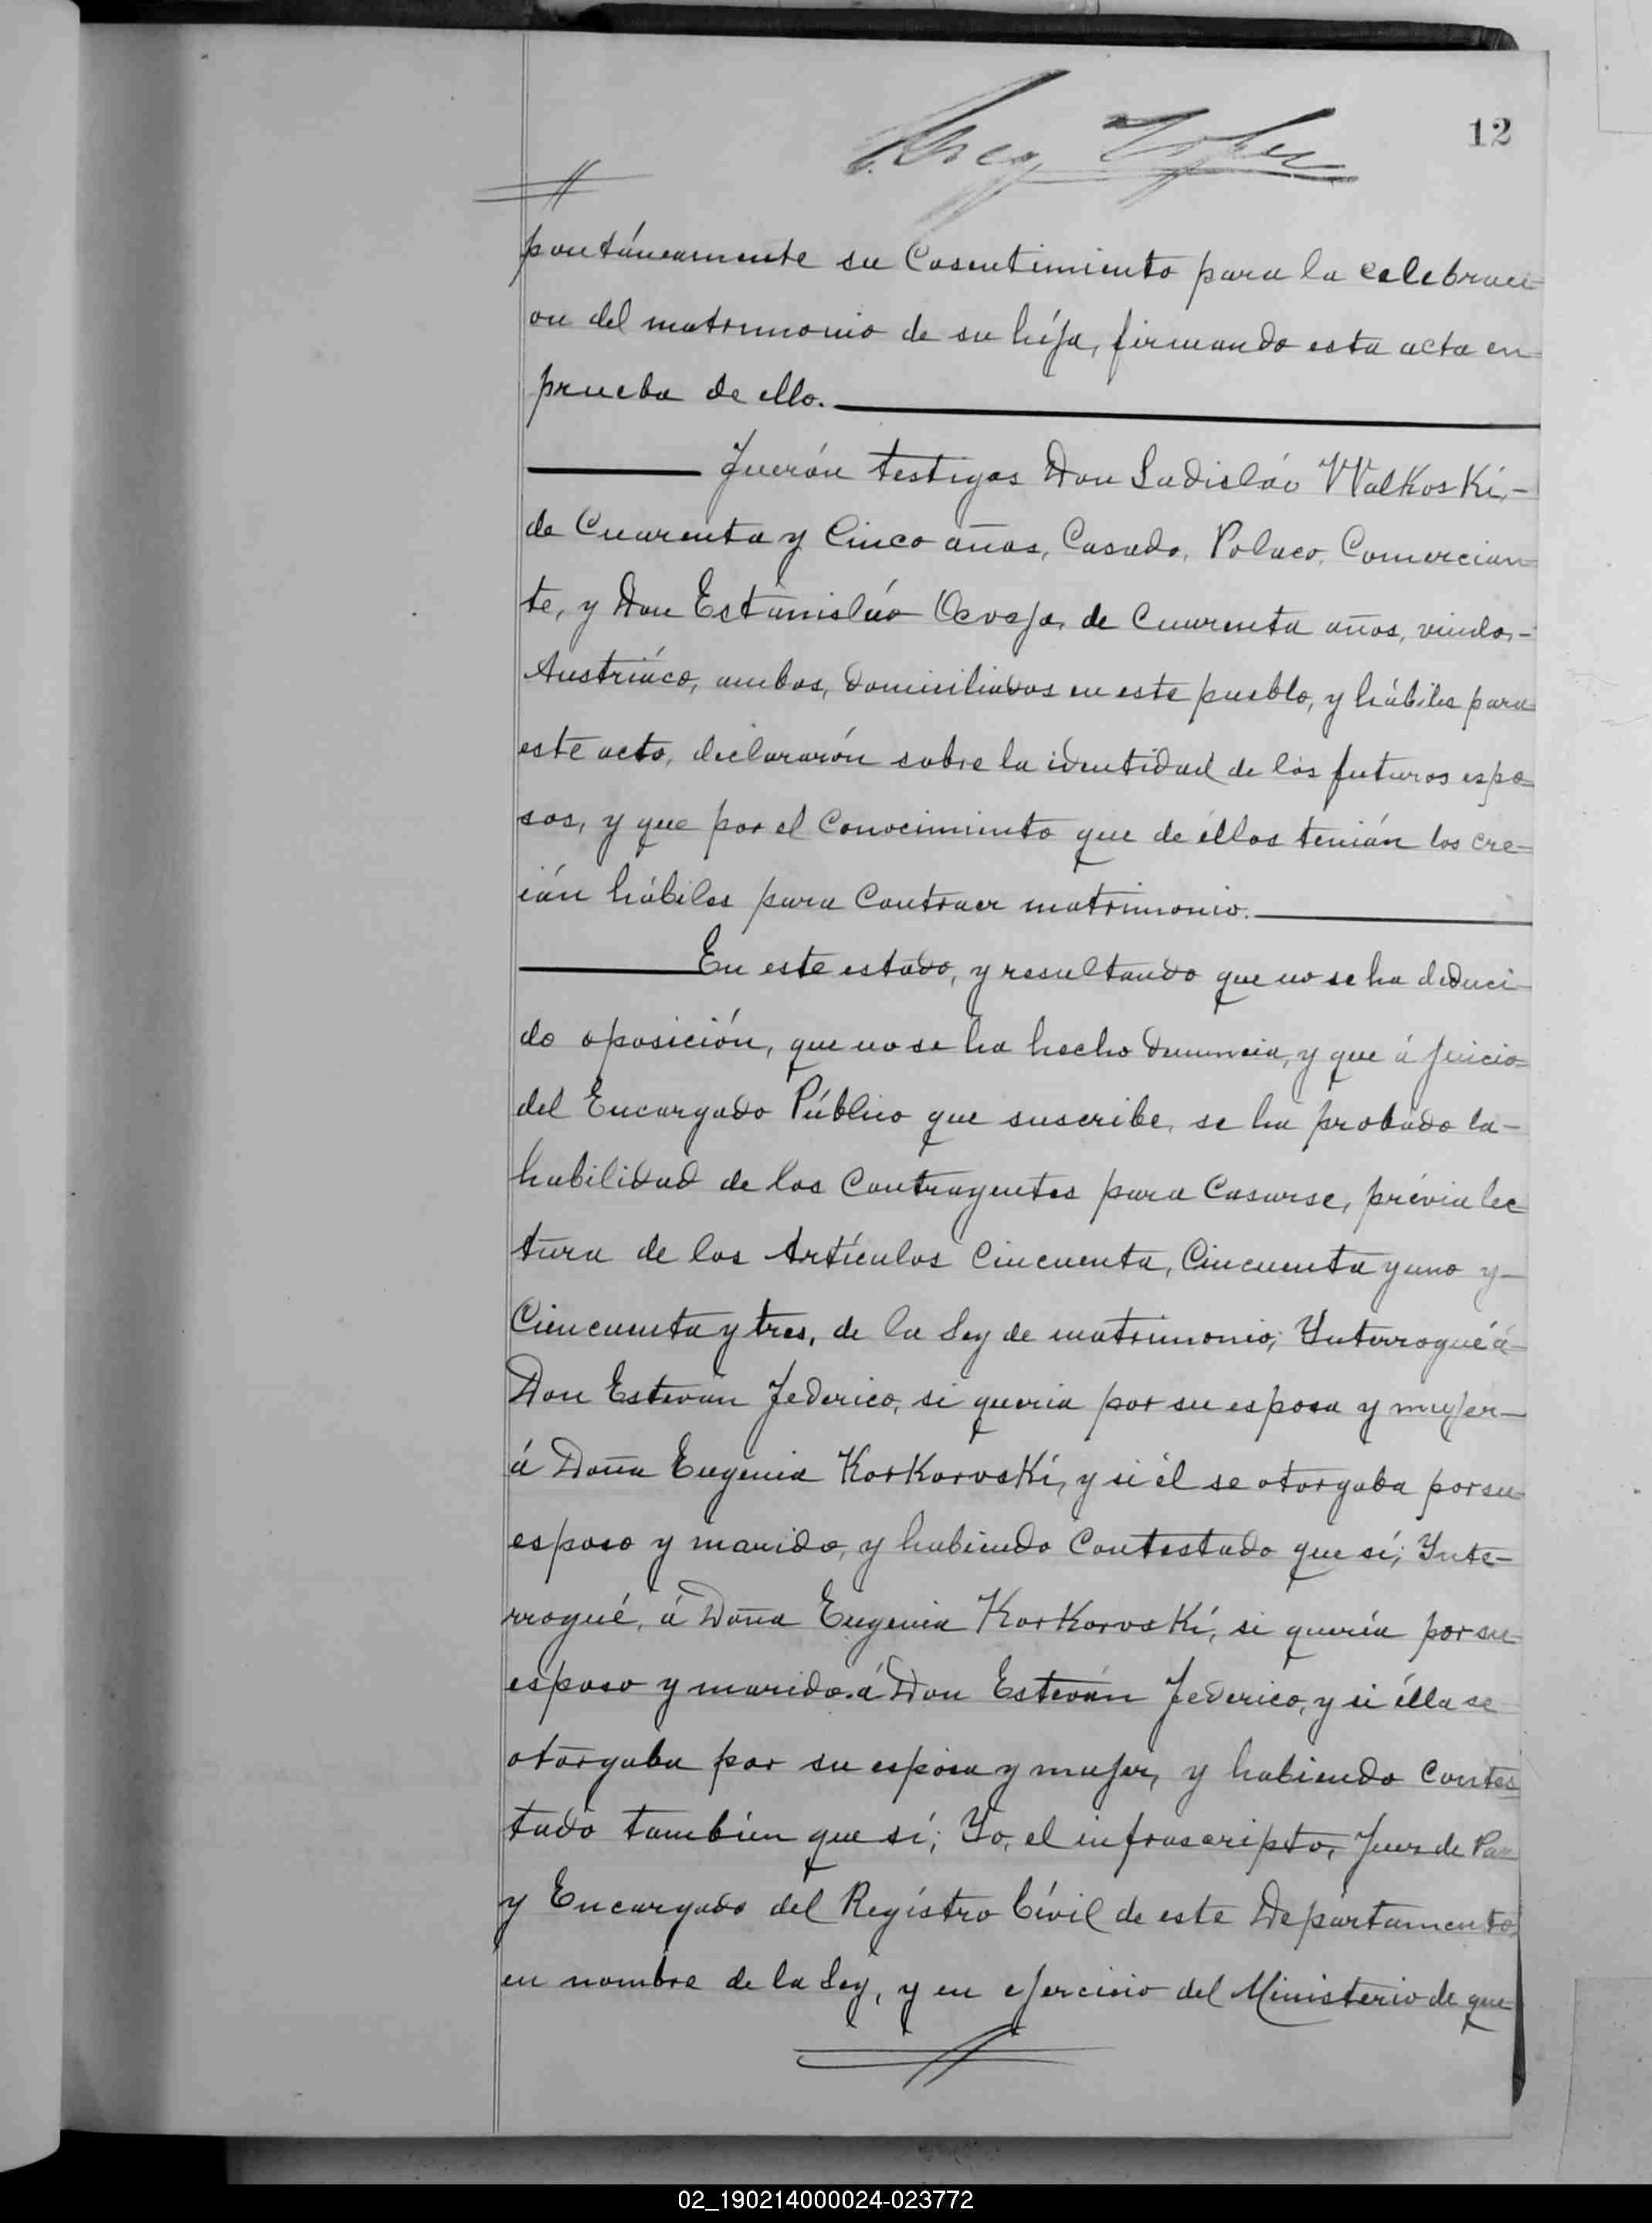 12
pontáneamente su Cosentimiento para la celebraci-
on del matrimonio de su híja, firmando esta acta en
prueba de ello.
Fuerón testigos Don Ladisláo Walkoskí,-
de Cuarenta y Cinco años, Casado, Polaco, Comercian=
te, y Don Estanisláo de Cuarenta años, viudo,-
Austriáco, ambos, domiciliados en este pueblo, y hábiles para
este acto, declararón sobre la identidad de los futuros espo=
sos, y que por el Conocimiento que de éllos tenián los cre=
ián hábiles para Contraer matrimonio.
En este estado, y resultando que no se ha deduci-
do oposición, que no se ha hecho denuncia, y que á juicio
del Encargado Público que suscribe, se ha probado la-
habilidad de los Contrayentes para Casarse, prévia lec
tura de los Artículos Cincuenta, Cincuenta y uno y-
Cincuenta y tres, de la Ley de matrimonio; Ynterrogué á-
Don Estevan Federico, si queria por su esposa y mujer-
á Doña Eugenia Korkoroskí, y si él se otorgaba por su
esposo y marido, y habiendo Contestado que sí; Ynte-
rrogué, á Doña Eugenia Korkoroskí, si quería por su
esposo y marido á Don Esteván Federico, y si élla se
otorgaba por su esposa y mujer, y habiendo Contes
tado tambien que sí; Yo, el infrascripto, Juez de Paz
y Encargado del Regístro Cívil de este Departamento,
en nombre de la Ley, y en ejercicio del Ministerio de que
02_190214000024-023772